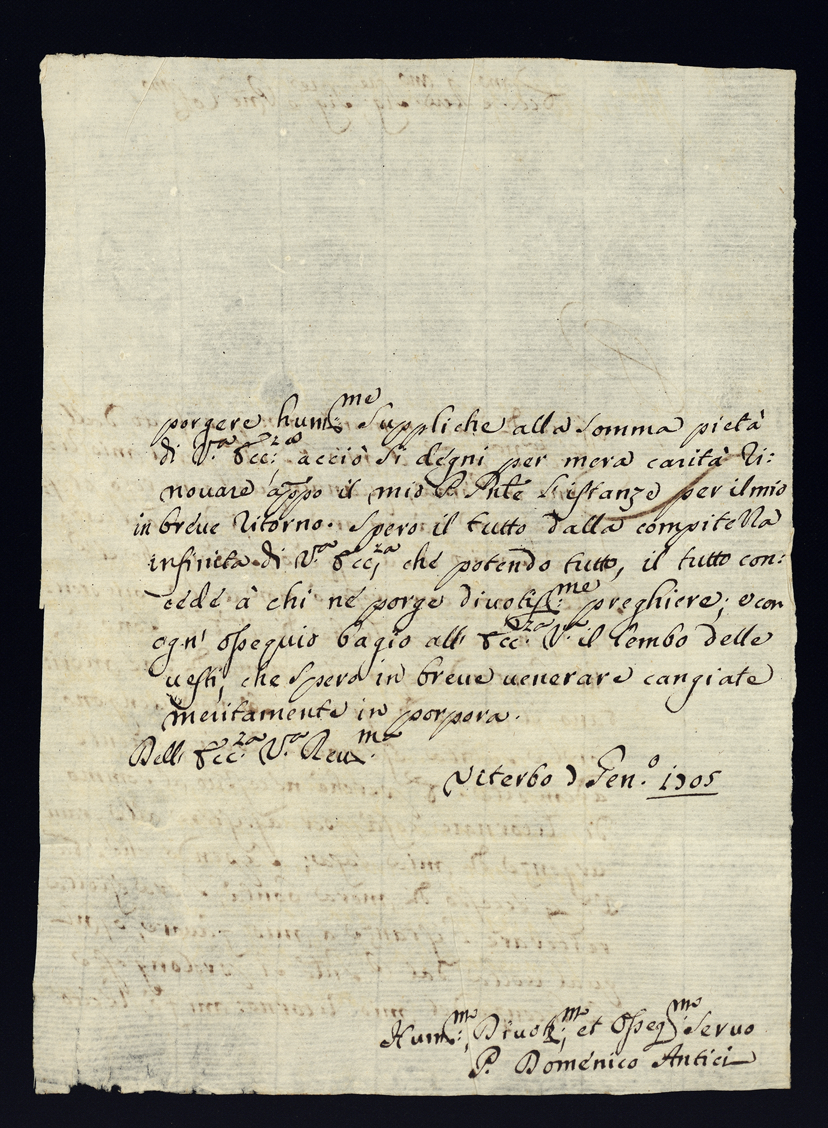 porgere hum.me suppliche alla somma pietà
di V.a Ecc:za acciò si degni per mera carità ri:
novare appo il mio P. Pnte l'istanze per il mio
in breve ritorno. Spero il tutto dalla compitezza
infinita di V.a Ecc.za che potendo tutto, il tutto con:
cede à chi ne porge divotiss:me preghiere; e con
ogn' ossequio bagio all' Ecc.za V.a il lembo delle
vesti, che spero in breve venerare cangiate
meritamente in porpora.
Dell' Ecc.za V.a Reu.ma
Viterbo Gen.o 1705
Hum:mo, Divot:mo et Osseq:mo Servo
P. Domenico Antici